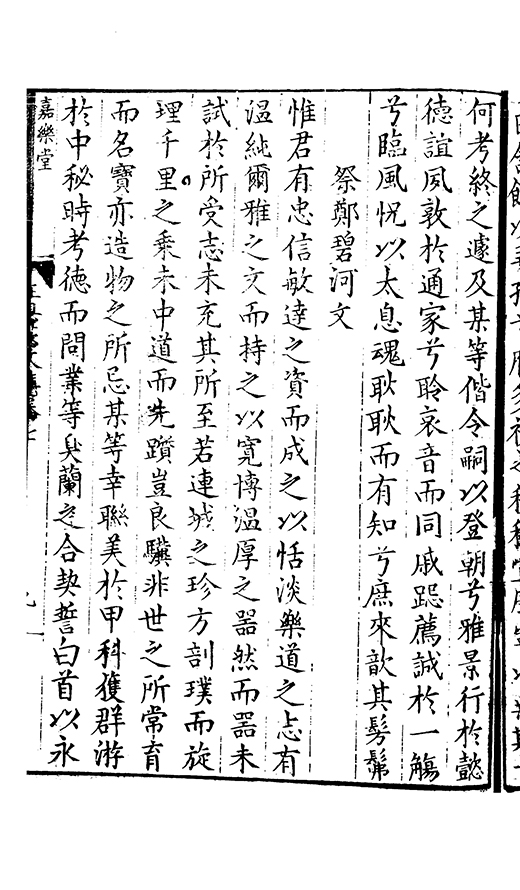 何考終之遽及某等偕令嗣以登朝兮雅景行於懿
德誼夙敦於通家兮聆哀音而同戚跽薦誠於一觴
兮臨風怳以太息魂耿耿而有知兮庶來歆其髣髴
祭鄭碧河文
惟君有忠信敏達之資而成之以恬淡樂道之志有
溫純爾雅之文而持之以寬博溫厚之器然而器未
試於所受志未充其所至若連城之珍方剖璞而旋
埋千里之乘未中道而先躓豈良驥非世之所常育
而名寶亦造物之所忌某等幸聯美於甲科獲群游
於中秘時考德而問業等臭蘭之合契誓白首以永
嘉樂堂